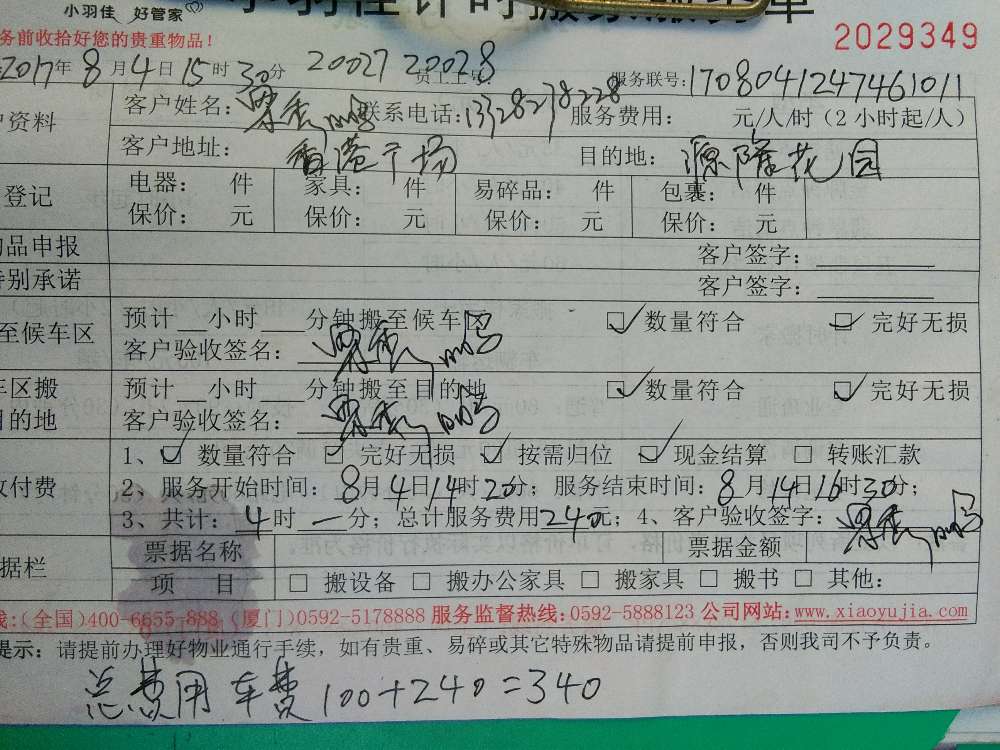 小羽佳 好管家
小羽佳计时搬家服务单
务前收拾好您的贵重物品！ 2029349
2017年8月4日15时30分 20027 20028 员工工号 服务联号：1708041247461011
户资料 客户姓名： 联系电话：13328278228 服务费用： 元/人/时（2小时起/人）
客户地址：香港广场 目的地：源隆花园
登记 电器： 件 家具： 件 易碎品： 件 包裹： 件
保价： 元 保价： 元 保价： 元 保价： 元
品申报 客户签字：
特别承诺 客户签字：
至候车区 预计 小时 分钟搬至候车区 数量符合 完好无损
客户验收签名：
车区搬 预计 小时 分钟搬至目的地 数量符合 完好无损
目的地 客户验收签名：
1、数量符合 完好无损 按需归位 现金结算 转账汇款
收付费 2、服务开始时间：8月4日14时20分；服务结束时间：8月14日16时30分；
3、共计：4时一分；总计服务费用240元；4、客户验收签字：
据栏 票据名称 票据金额
项 目 搬设备 搬办公家具 搬家具 搬书 其他：
线：（全国）400-6655-888（厦门）0592-5178888 服务监督热线：0592-5888123 公司网站：www.xiaoyujia.com
提示：请提前办理好物业通行手续，如有贵重、易碎或其它特殊物品请提前申报，否则我司不予负责。
总费用 车费100+240=340